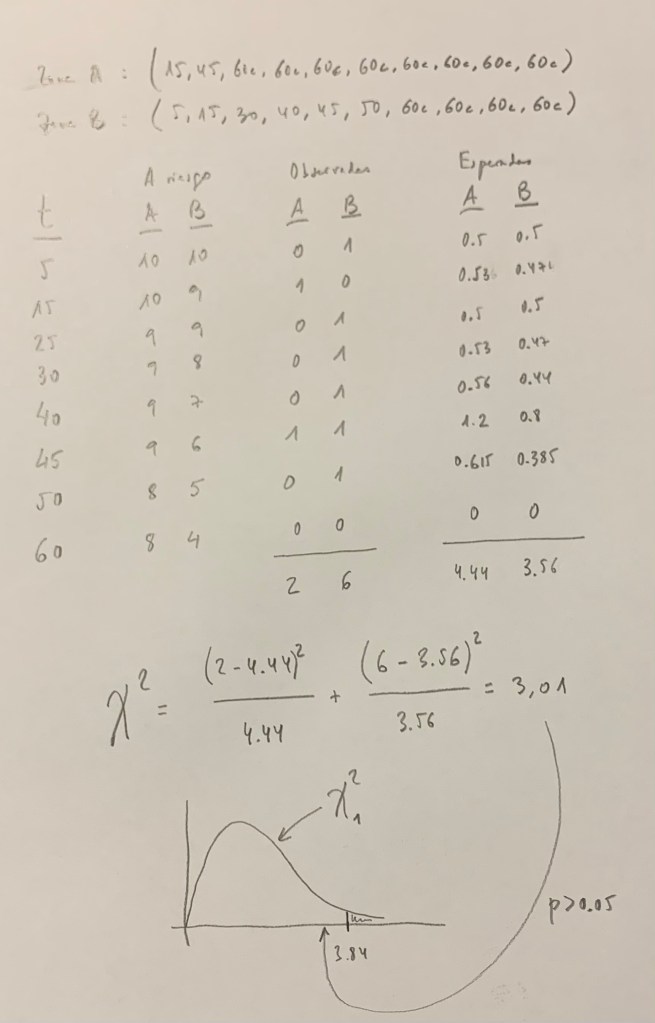 Zona A : (15, 45, 60c, 60c, 60c, 60c, 60c, 60c, 60c, 60c)
Zona B : (5, 15, 30, 40, 45, 50, 60c, 60c, 60c, 60c)
A riesgo Observados Esperados
t A B A B A B
5 10 10 0 1 0.5 0.5
15 10 9 1 0 0.53 0.471
25 9 9 0 1 0.5 0.5
30 9 8 0 1 0.53 0.47
40 9 7 0 1 0.56 0.44
45 9 6 1 1 1.2 0.8
50 8 5 0 1 0.615 0.385
60 8 4 0 0 0 0
2 6 4.44 3.56
χ² = (2-4.44)²/4.44 + (6-3.56)²/3.56 = 3,01
χ²₁
p>0.05
3.84